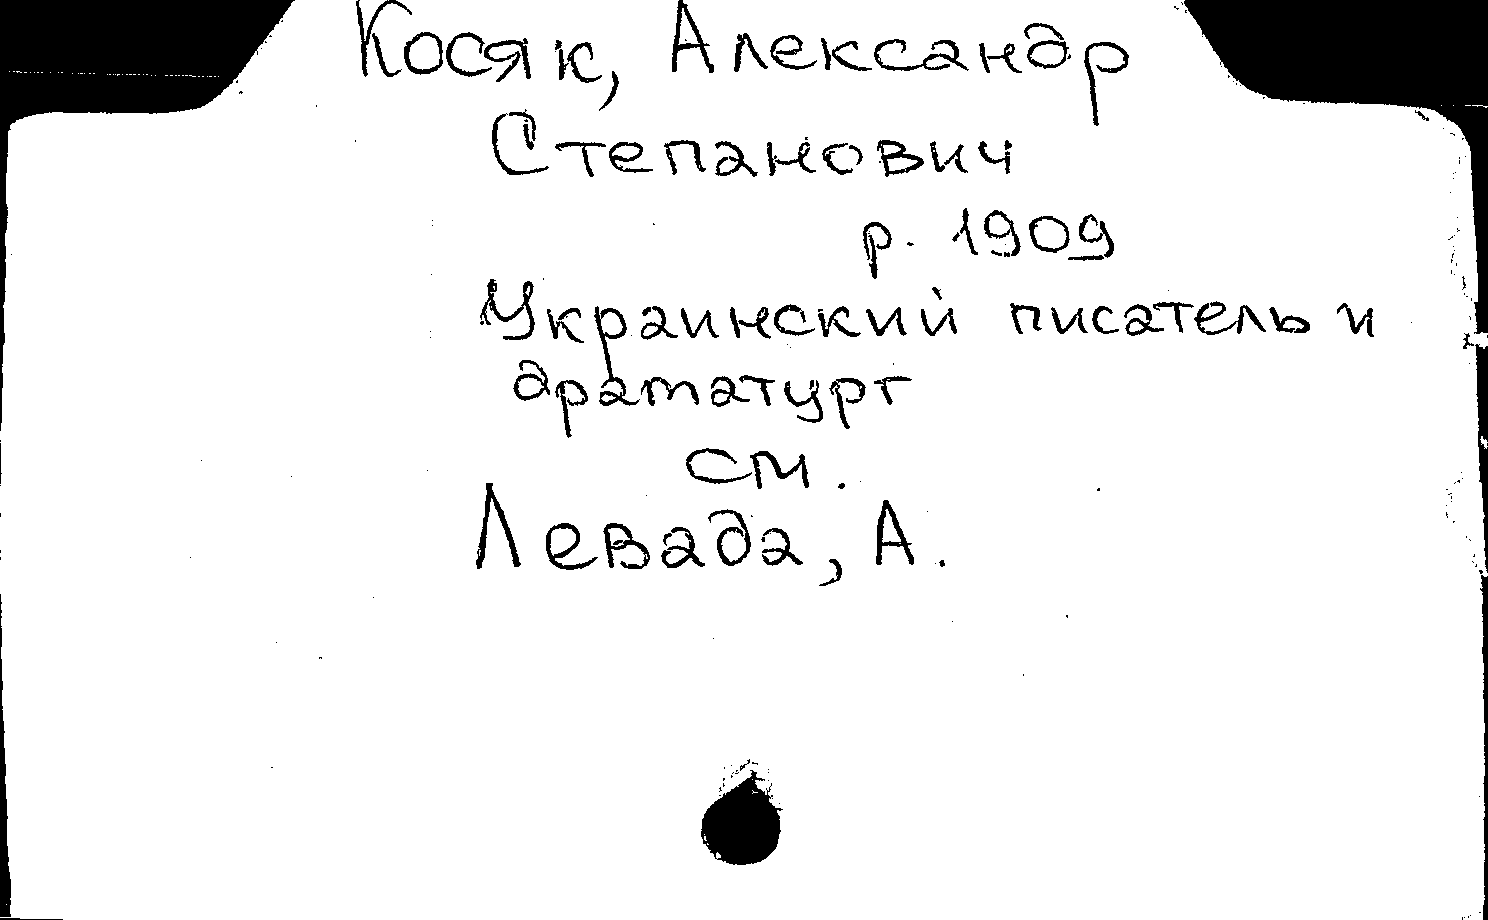 Косяк, Александр
Степанович
р. 1909
Украинский писатель и
драматург
см.
Левада, А.